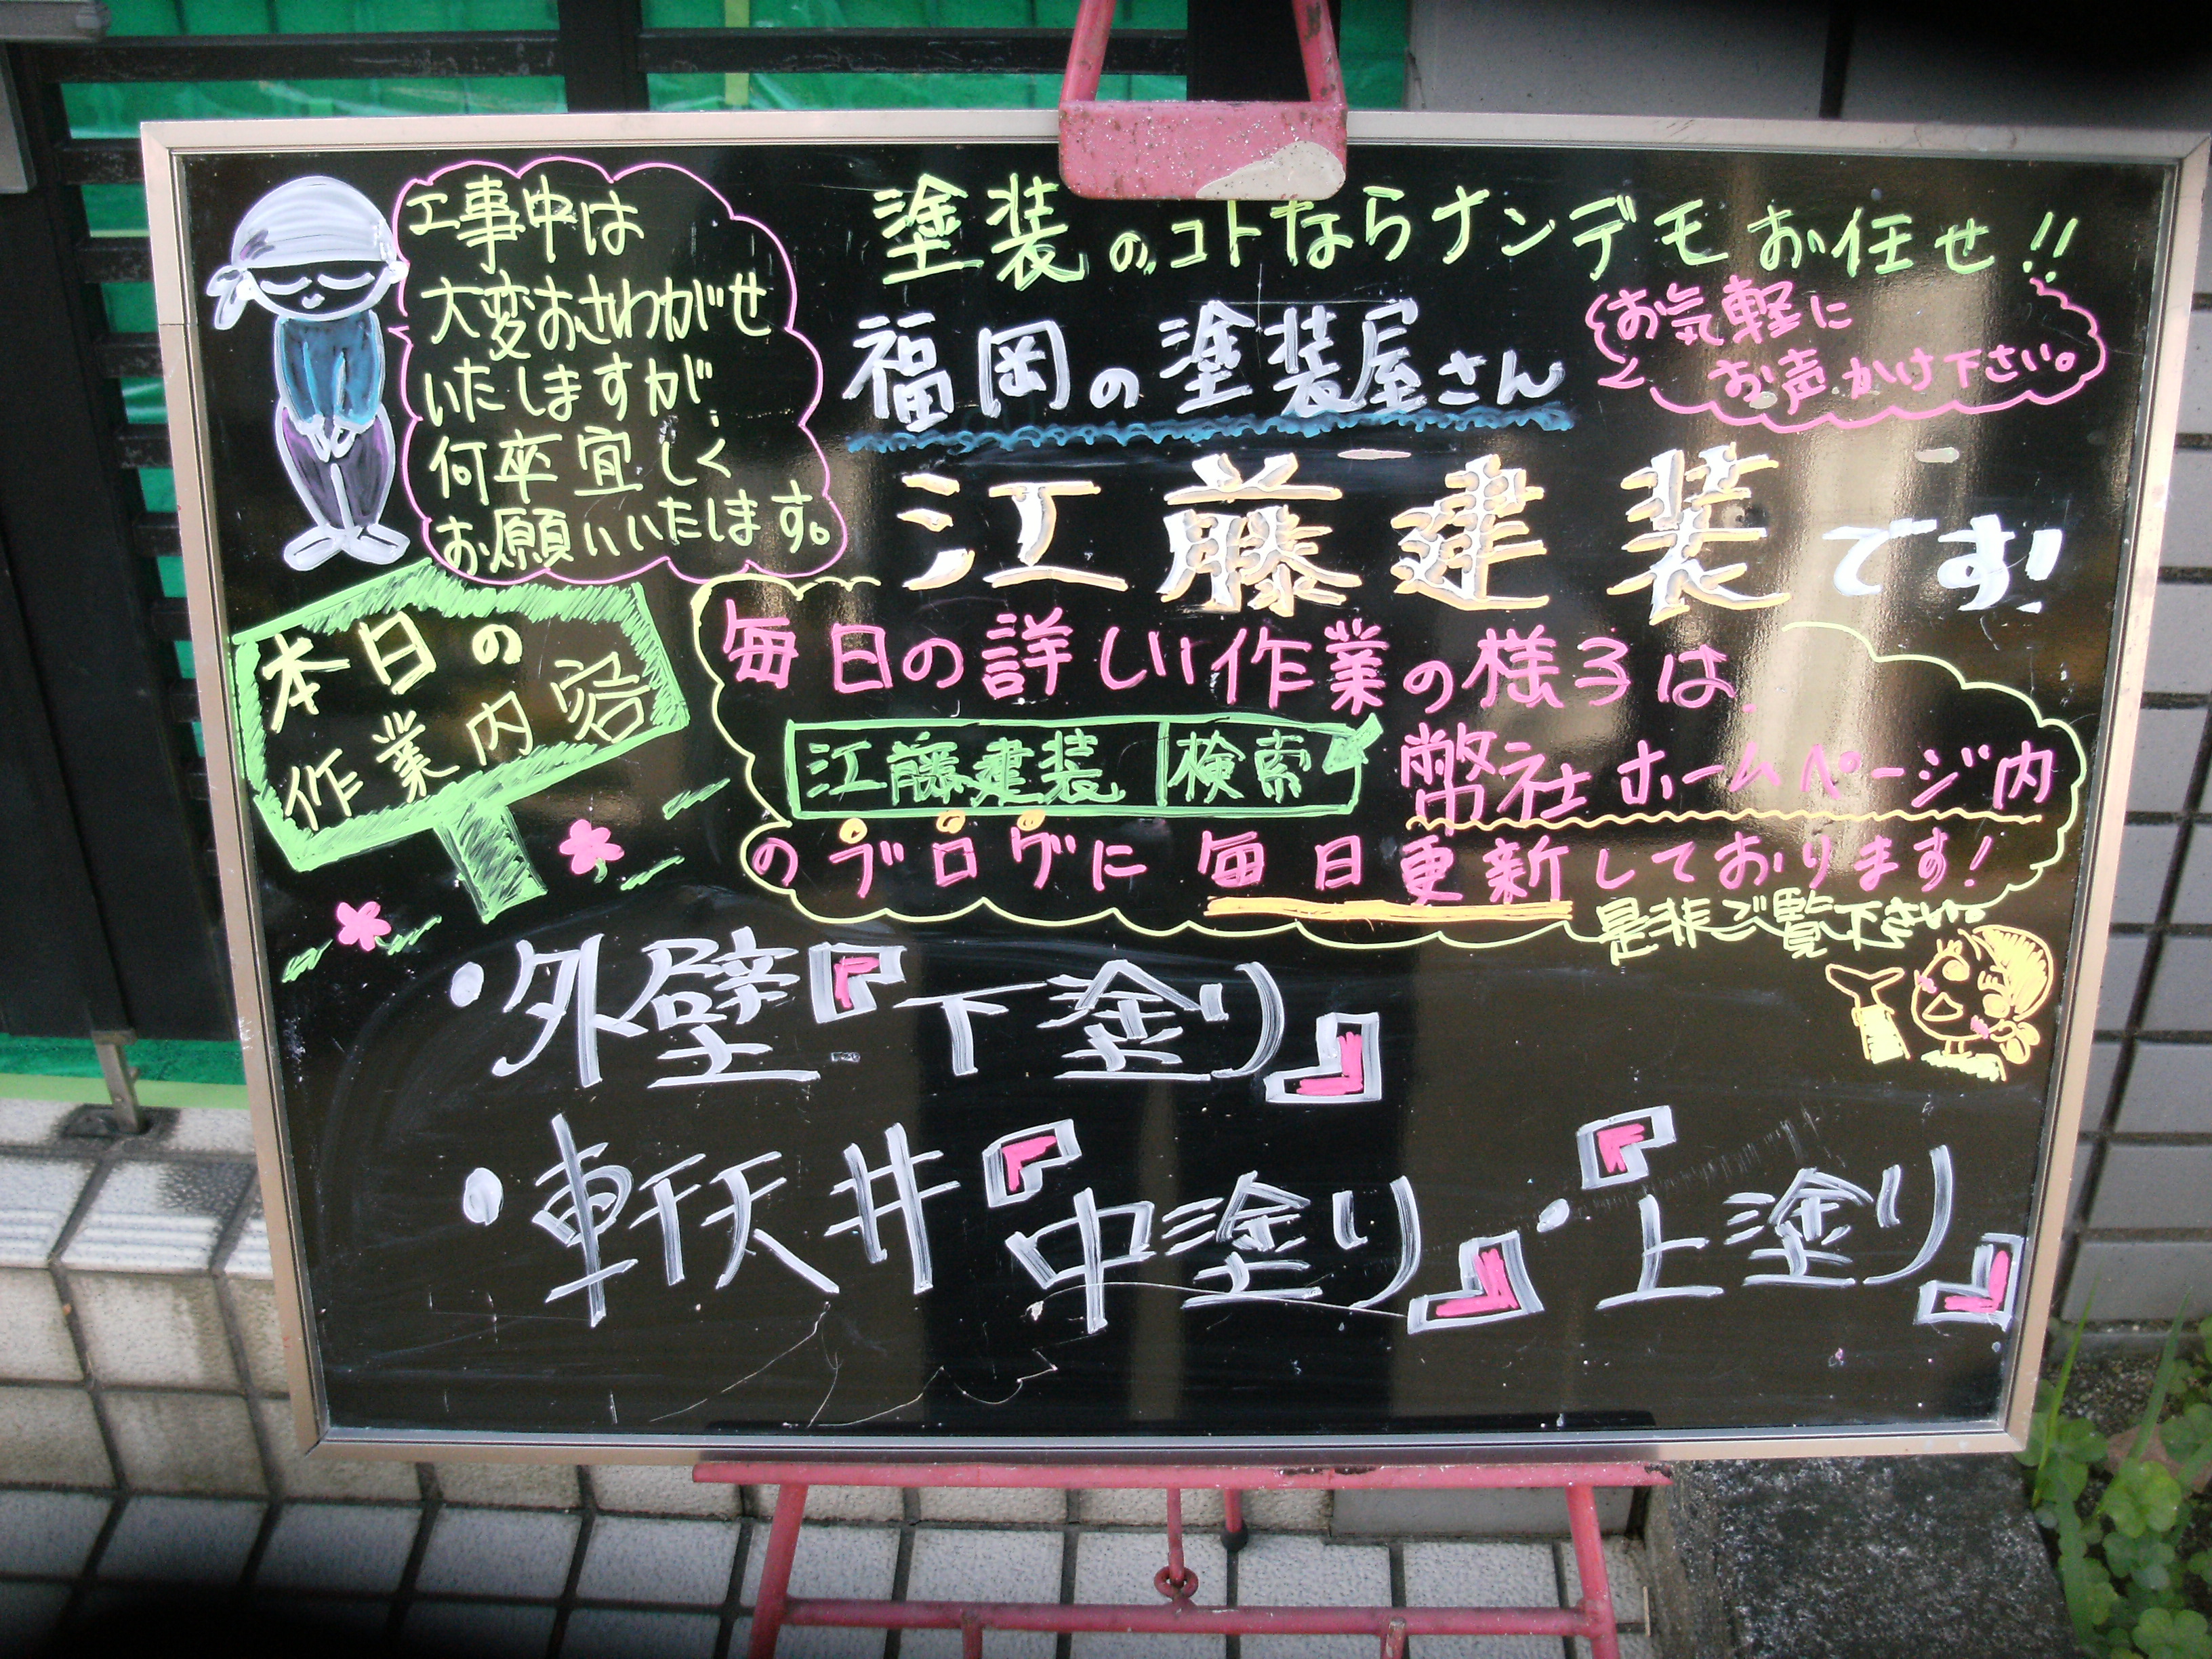 工事中は
大変おさわがせ
いたしますが、
何卒宜しく
お願いいたします。
塗装のコトならナンデモお任せ!!
福岡の塗装屋さん
お気軽に
お声かけ下さい。
江藤建装です!
本日の
作業内容
毎日の詳しい作業の様子は、
江藤建装 検索 弊社ホームページ内
のブログに毎日更新しております!
是非ご覧下さい。
・外壁『下塗り』
・軒天井『中塗り』・『上塗り』